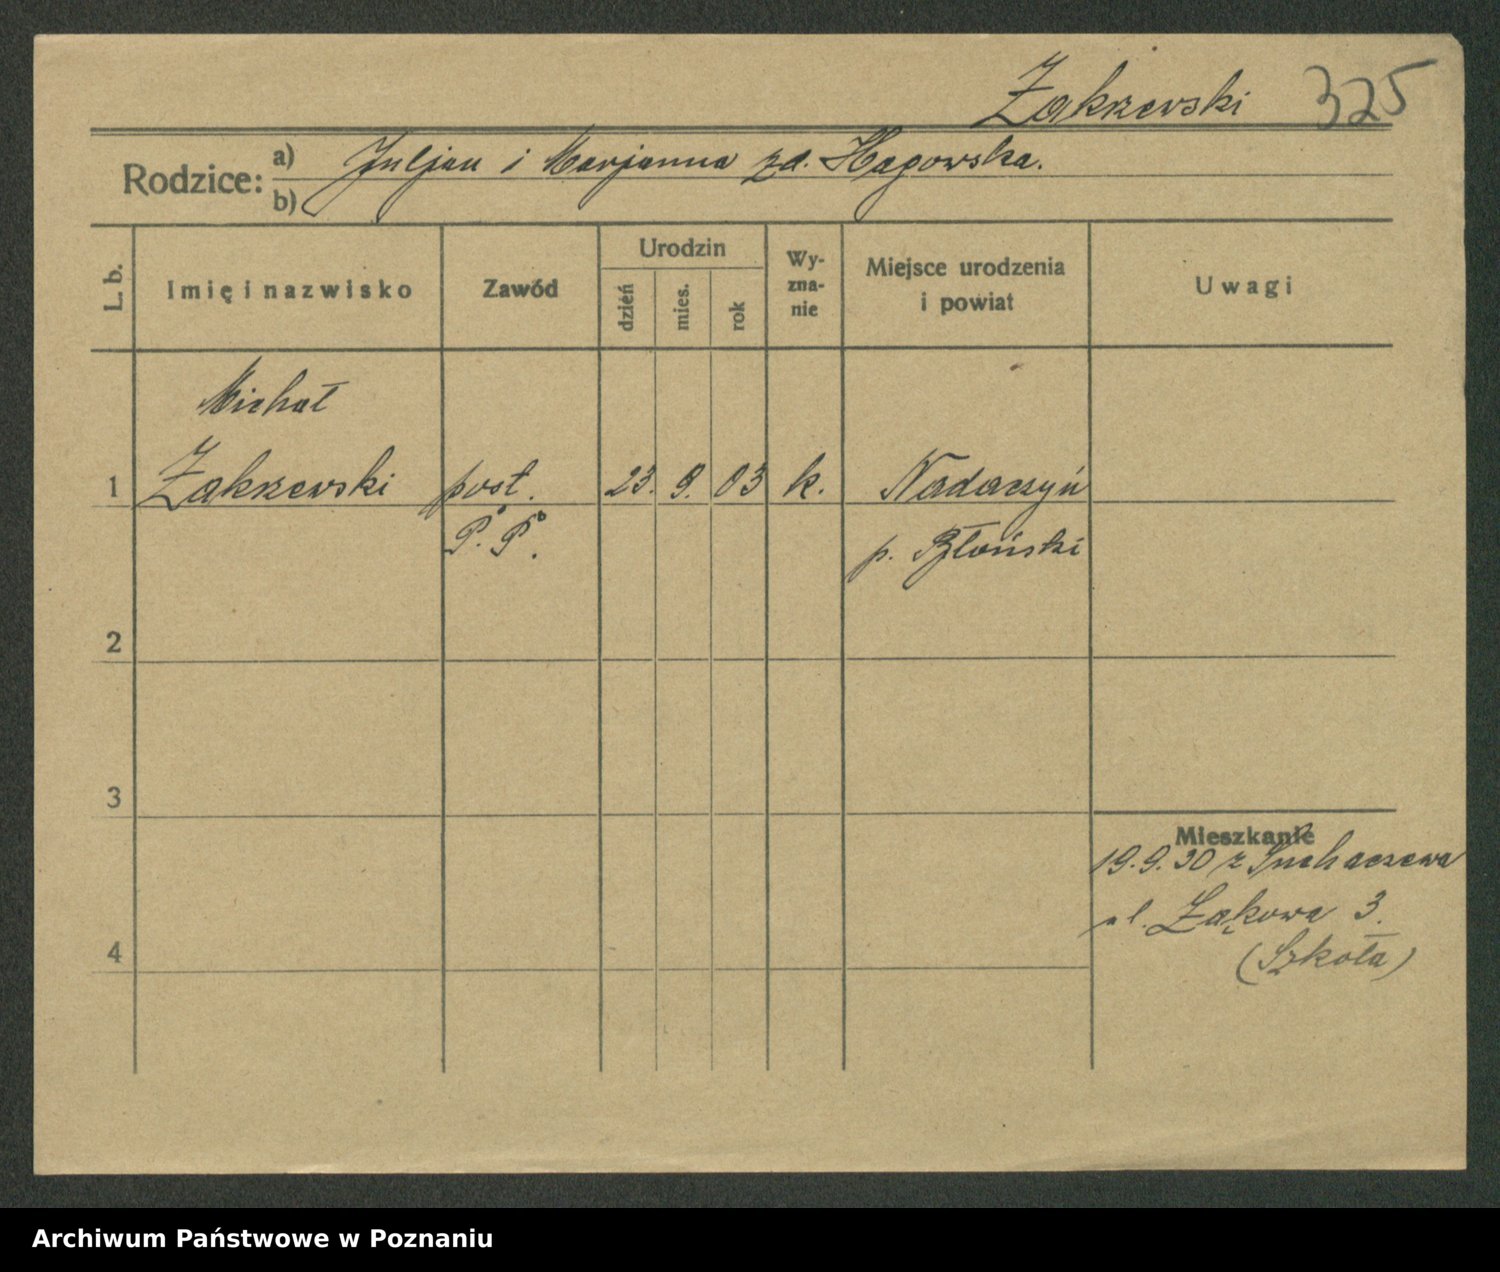 Zakrzewski 325
Rodzice: a) Juljan i Marjanna zd. Hagowska.
b)
L. b. Imię i nazwisko Zawód Urodzin dzień mies. rok Wyznanie Miejsce urodzenia i powiat Uwagi
Michał
1 Zakrzewski post. 23. 9. 03 k. Nadarzyń
P. P. p. Błoński
2
3
Mieszkanie
19.9.30 z Sochaczewa
ul. Łąkowa 3.
4 (Szkoła)
Archiwum Państwowe w Poznaniu